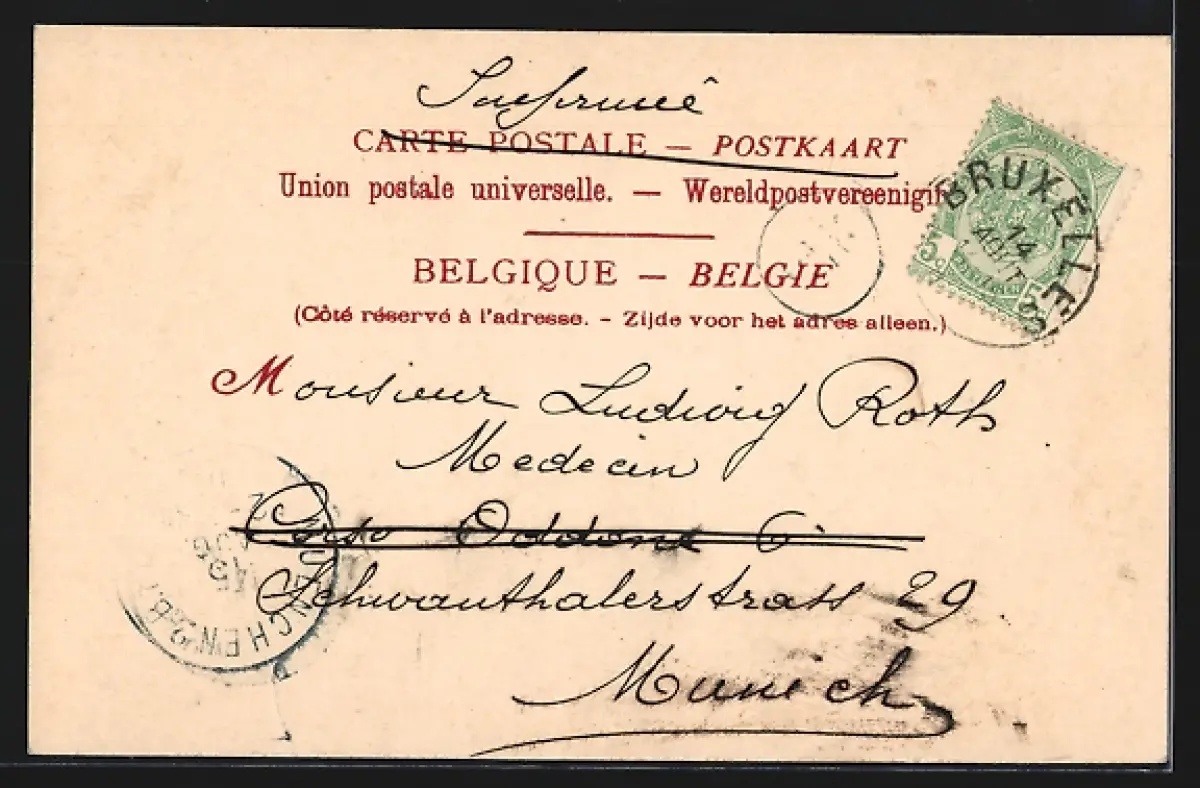 Imprimé
CARTE POSTALE — POSTKAART
Union postale universelle. — Wereldpostvereeniging
BELGIQUE — BELGIE
(Côté réservé à l'adresse. - Zijde voor het adres alleen.)
BRUXELLES
14
AOUT
5c
5
Monsieur Ludwig Roth
Medecin
Corso Oddone 6
Schwanthalerstrass 29
Munich
MUENCHEN